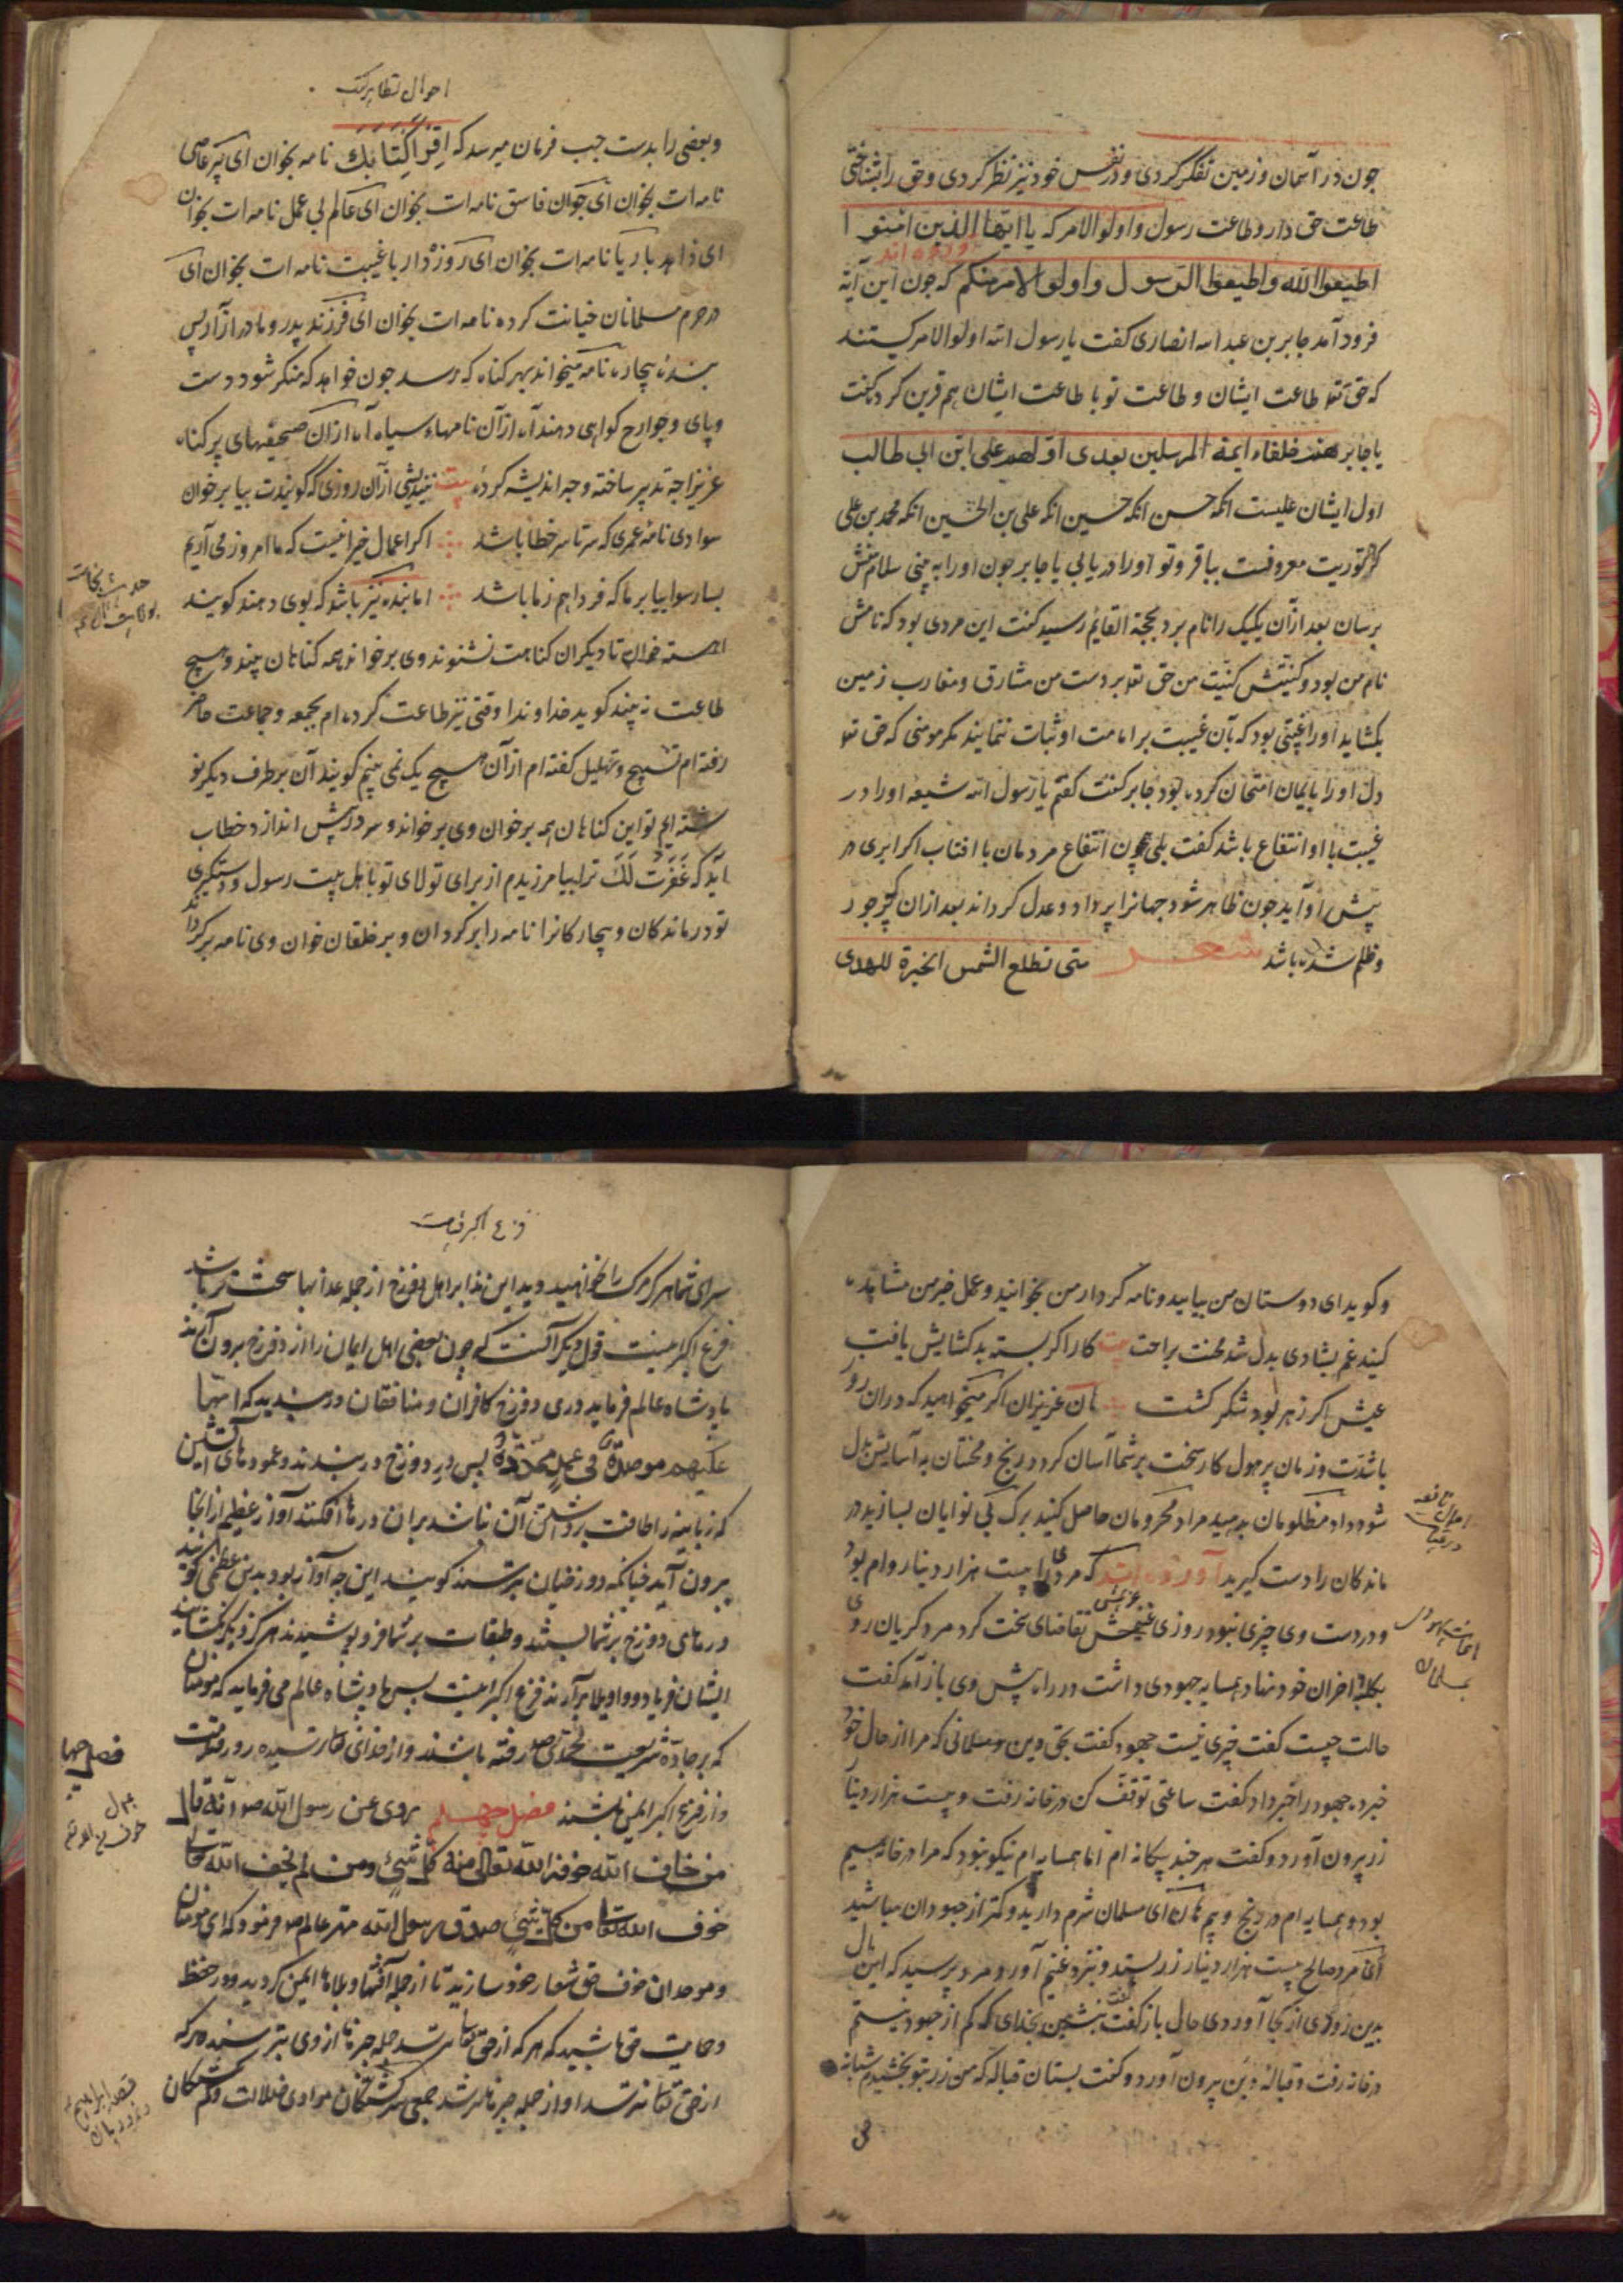 چون در آسمان و زمین تفکر کردی و در نفس خود نیز نظر کردی و حق را بشناختی
طاعت حق دار و طاعت رسول و اولوالامر که یا ایها الذین امنوا
اطیعوا الله و اطیعوا الرسول و اولو الامر منکم که چون این آیة
فرود آمد جابر بن عبد الله انصاری کفت یا رسول الله اولوالامر کیستند
که حق تعه طاعت ایشان و طاعت تو با طاعت ایشان هم قرین کرد کفت
یا جابر هند خلفاء ایمة المرسلین بعدی اولهم علی ابن ابی طالب
اول ایشان علیست انکه حسن انکه حسین انکه علی بن الحسین انکه محمد بن علی
که در توریت معروفست بباقر و تو اورا دریابی یا جابر چون اورا به بینی سلام منش
برسان بعد ازآن یکیک را نام برد بحجة القایم رسید کفت این مردی بود که نامش
نام من بود و کنیتش کنیت من حق تعه بر دست من مشارق و مغارب زمین
بکشاید اورا غیبتی بود که بآن غیبت بر امامت او ثبات ننمایند مکر مومنی که حق تعه
دل اورا بایمان امتحان کرده بود جابر کفت کفتم یا رسول الله شیعه اورا در
غیبت با او انتفاع باشد کفت بلی چون انتفاع مردمان با افتاب اکر ابری در
پیش او آید چون ظاهر شود جهانرا پر داد و عدل کرداند بعد ازان که پر جور
و ظلم شده باشد شعر متی تطلع الشمس الخیرة للهدی
احوال تطایر کتب
و بعضی را بدست چپ فرمان میرسد که اقرأ کتابک نامه بخوان ای پیر عاصی
نامه ات بخوان ای جوان فاسق نامه ات بخوان ای عالم بی عمل نامه ات بخوان
ای زاهد با ریا نامه ات بخوان ای روزه دار با غیبت نامه ات بخوان ای
در حرم مسلمانان خیانت کرده نامه ات بخوان ای فرزند پدر و مادر ازار پس
بنده بیچاره نامه میخواند بهر کناه که رسد چون خواهد که منکر شود دست
و پای و جوارح کواهی دهند آه ازآن نامهاء سیاه آه ازآن صحیفهای پر کناه
عزیزا چه تدبیر ساخته و چه اندیشه کرده بیت نیندیشی ازآن روزی که کویندت بیا برخوان
سوادی نامه عمری که سرتاسر خطا باشد اکر اعمال خیر اینست که ما امروز می آریم
بسا رسوایی بر ما که فردا هم ز ما باشد اما بنده نیز باشد که بوی دهند کویند
اهسته خوان تا دیکران کناهت نشنوند وی برخواند همه کناهان بیند و هیچ
طاعت نه بیند کوید خداوندا وقتی نیز طاعت کرده ام بجمعه و جماعت حاضر
رفته ام تسبیح و تهلیل کفته ام ازآن هیچ یک نمی بینم کویند آن بر طرف دیکر نو
شته ایم تو این کناهان همه برخوان وی برخواند و سر در پیش اندازد خطاب
آید که غفرت لک ترا بیامرزیدم از برای تولای تو باهل بیت رسول و دستکیری
تو درماندکان و بیچارکانرا نامه را برکردان و بر خلقان خوان وی نامه برکرداند
و کوید ای دوستان من بیایید و نامه کردار من بخوانید و عمل خیر من مشاهده
کنید غم بشادی بدل شد محنت براحت بیت کارا کر بسته بد کشایش یافت
عیش اکر زهر بود شکر کشت هان عزیزان اکر میخواهید که دران روز
باشدت و زمان پر هول کار سخت بر شما آسان کردد و رنج و محنتان به آسایش بدل
شود داد مظلومان بدهید مراد محرومان حاصل کنید برک بی نوایان بسازید در
ماندکان را دست کیرید آورده اند که مردی را بیست هزار دینار وام بود
و در دست وی چیزی نبود روزی غریمش تقاضای سخت کرد مرد کریان روی
بکلبه احزان خود نهاد همسایه جهودی داشت در راه پیش وی باز آمد کفت
حالت چیست کفت چیزی نیست جهود کفت بحق دین و مسلمانی که مرا از حال خود
خبر ده جهود را خبر داد کفت ساعتی توقف کن در خانه رفت و بیست هزار دینار
زر بیرون آورد و کفت هر چند بیکانه ام اما همسایه ام نیکو نبود که مرا در خانه سیم
بود و همسایه ام در رنج و بیم هان ای مسلمان شرم دارید و کمتر از جهودان مباشید
آن مرد صالح بیست هزار دینار زر بستد و نزد غریم آورد مرد پرسید که این مال
بدین زودی از کجا آوردی حال باز کفت کفت بنشین بخدای که کم از جهود نیستم
در خانه رفت و قباله دین بیرون آورد و کفت بستان قباله که من زر بتو بخشیدم شبانه
فزع اکبر قیامت
سرای شما هرکز مرک را نخواهید دید این ندا بر اهل دوزخ از جمله عذابها سخت تر باشد
فزع اکبر اینست قول دیکر آنست که چون بعضی اهل ایمان را از دوزخ برون آرند
پادشاه عالم فرماید دری دوزخ کافران و منافقان دربندید که انها
علیهم موصدة فی عمد ممددة پس در دوزخ دربندند و عمودهای آتشین
که زبانیه را طاقت برداشتن آن نباشد بران درها افکنند آواز عظیم ازانجا
بیرون آید چنانکه دوزخیان بترسند کویند این چه آواز بود بدین عظمی کویند
درهای دوزخ بر شما ببستند و طبقات بر شما فرو پوشیدند هرکز دیکر نکشایند
ایشان فریاد و واویلا برآرند فزع اکبر اینست پس پادشاه عالم می فرماید که مومنان
که بر جاده شریعت محمدی صلعم رفته باشند و از خدای تعالی ترسیده روز قیامت
از فزع اکبر ایمن باشند فصل چهلم یروی عن رسول الله صلعم انه قال
من خاف الله خوف الله تعالی منه کل شیء و من لم یخف الله تعالی
خوف الله تعالی من کل شیء صدق رسول الله مهتر عالم صلعم فرمود که ای مومنان
و موحدان خوف حق شعار خود سازید تا از جمله آفتها و بلاها ایمن کردید و در حفظ
و حمایت حق باشید که هر که از حق تعالی ترسد جمله چیزها از وی بترسند و هر که
از حق تعالی نترسد او از جمله چیزها ترسد جمعی سرکشتکان بوادی ضلالت و کم کشتکان